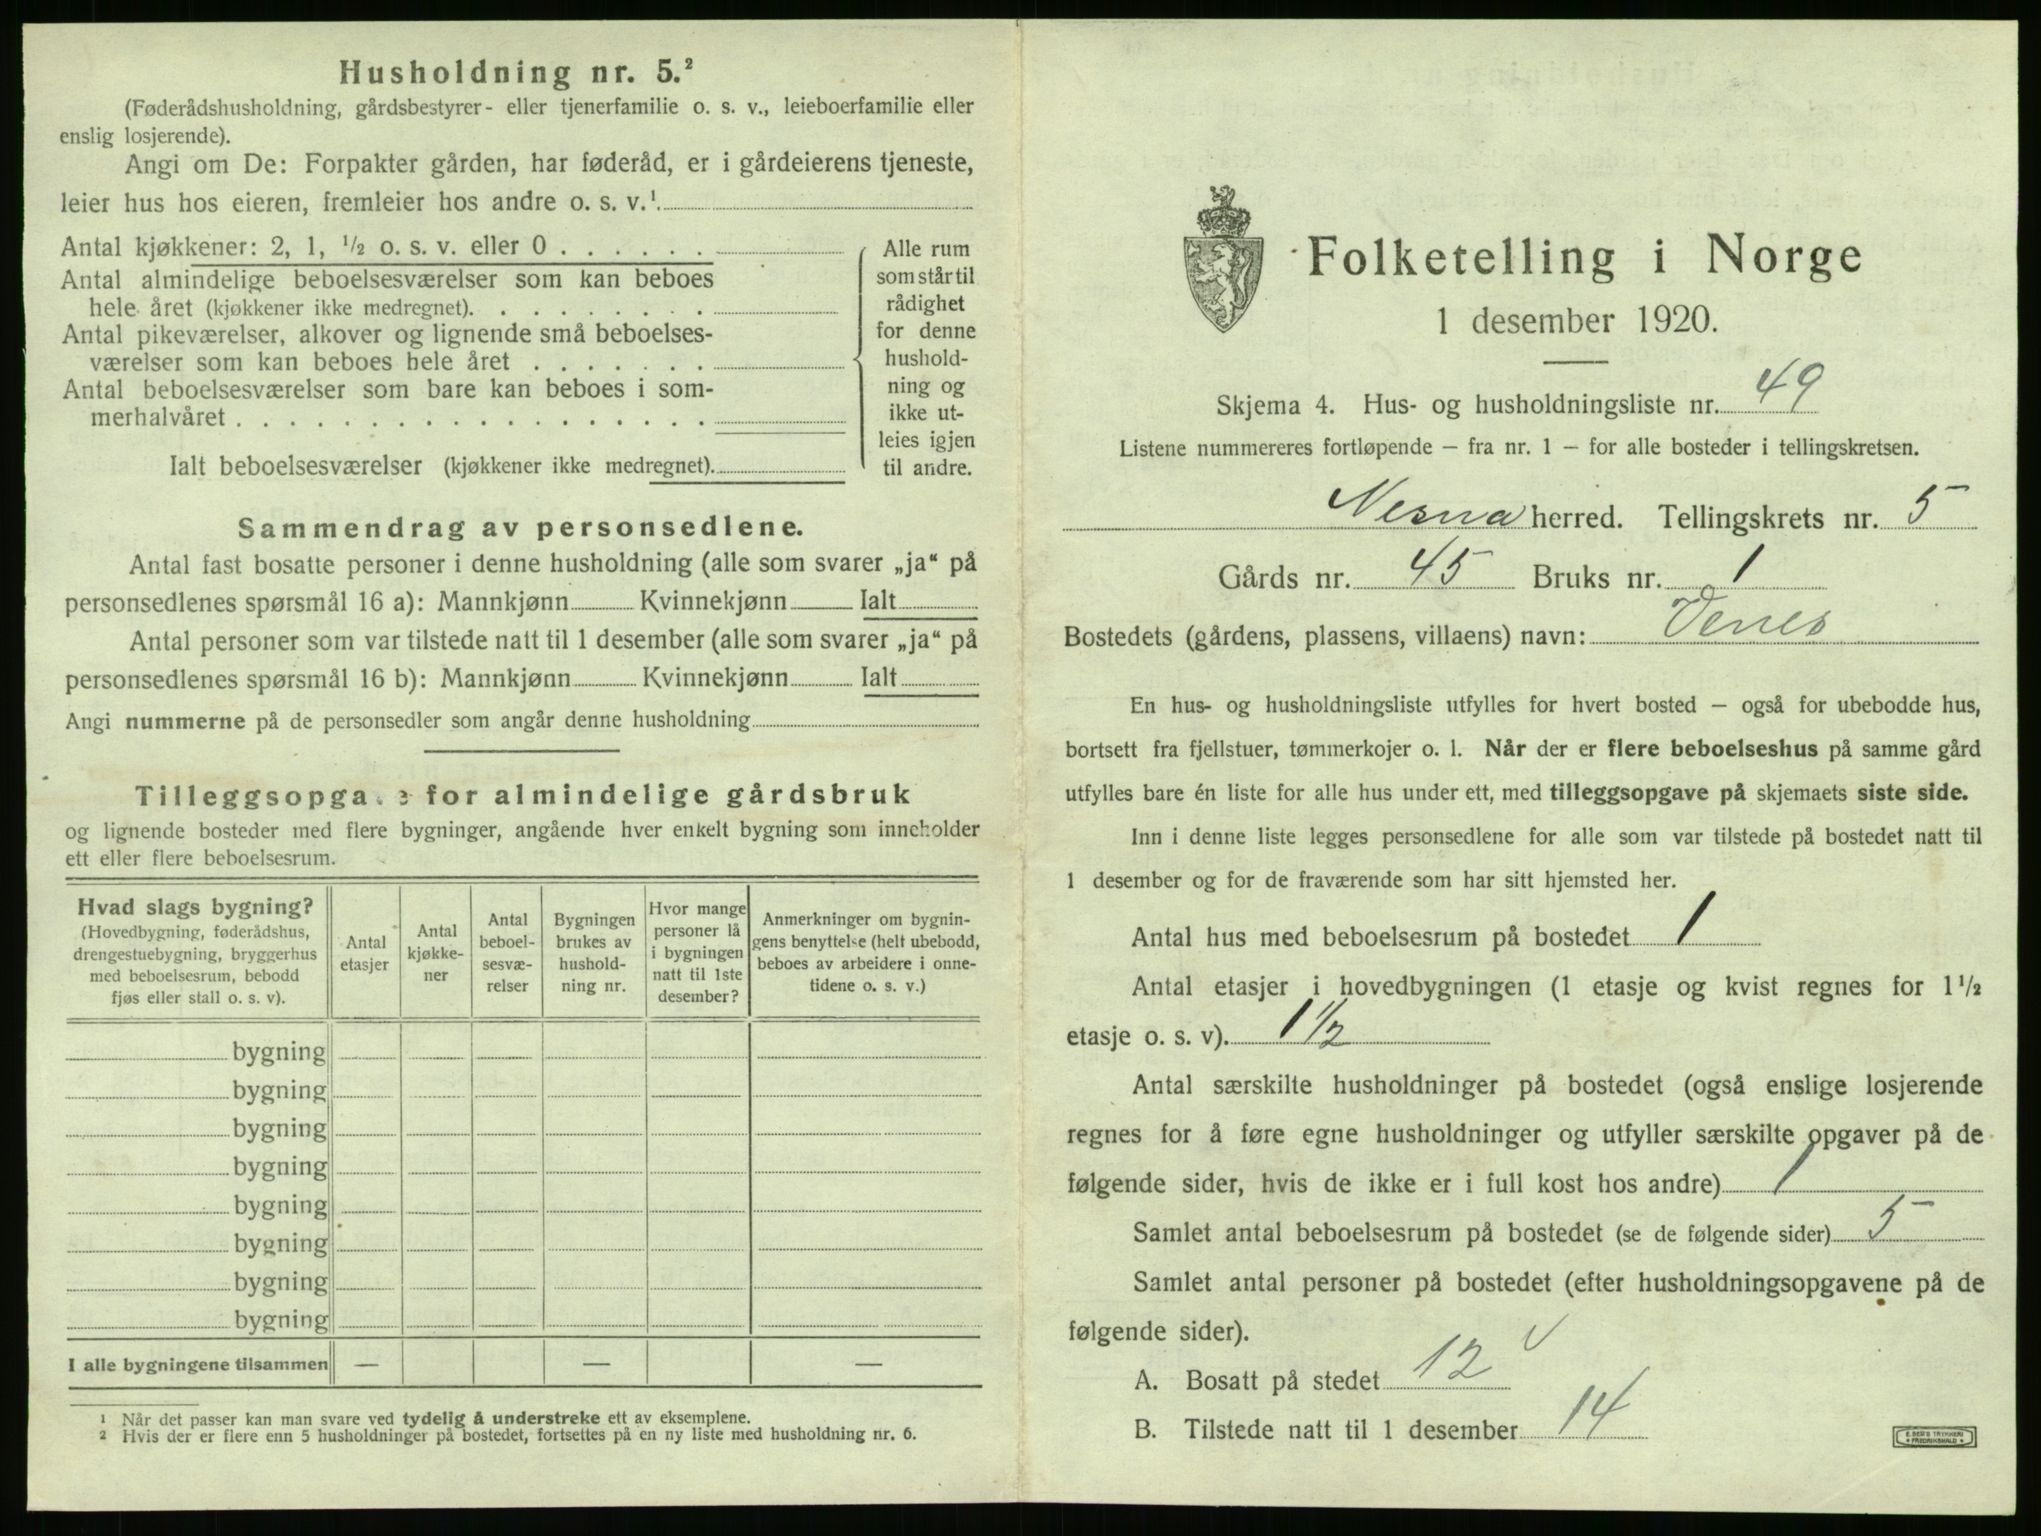 Husholdning nr. 5.²
(Føderådshusholdning, gårdsbestyrer- eller tjenerfamilie o. s. v., leieboerfamilie eller
enslig losjerende).
Angi om De: Forpakter gården, har føderåd, er i gårdeierens tjeneste,
leier hus hos eieren, fremleier hos andre o. s. v.¹
Antal kjøkkener: 2, 1, ½ o. s. v. eller 0 . . . . . .
Antal almindelige beboelsesværelser som kan beboes
hele året (kjøkkener ikke medregnet). . . . . . . . .
Antal pikeværelser, alkover og lignende små beboelses-
værelser som kan beboes hele året . . . . . . .
Antal beboelsesværelser som bare kan beboes i som-
merhalvåret . . . . . . . . . . . . . . . . . .
Ialt beboelsesværelser (kjøkkener ikke medregnet).
Alle rum
som står til
rådighet
for denne
hushold-
ning og
ikke ut-
leies igjen
til andre.
Sammendrag av personsedlene.
Antal fast bosatte personer i denne husholdning (alle som svarer „ja“ på
personsedlenes spørsmål 16 a): Mannkjønn Kvinnekjønn Ialt
Antal personer som var tilstede natt til 1 desember (alle som svarer „ja“ på
personsedlenes spørsmål 16 b): Mannkjønn Kvinnekjønn Ialt
Angi nummerne på de personsedler som angår denne husholdning
Tilleggsopgave for almindelige gårdsbruk
og lignende bosteder med flere bygninger, angående hver enkelt bygning som inneholder
ett eller flere beboelsesrum.
Hvad slags bygning?
(Hovedbygning, føderådshus,
drengestuebygning, bryggerhus
med beboelsesrum, bebodd
fjøs eller stall o. s. v).
Antal
etasjer
Antal
kjøkke-
ner
Antal
beboel-
sesvæ-
relser
Bygningen
brukes av
hushold-
ning nr.
Hvor mange
personer lå
i bygningen
natt til 1ste
desember?
Anmerkninger om bygnin-
gens benyttelse (helt ubebodd,
beboes av arbeidere i onne-
tidene o. s. v.)
bygning
bygning
bygning
bygning
bygning
bygning
bygning
bygning
I alle bygningene tilsammen — — —
¹ Når det passer kan man svare ved tydelig å understreke ett av eksemplene.
² Hvis der er flere enn 5 husholdninger på bostedet, fortsettes på en ny liste med husholdning nr. 6.
Folketelling i Norge
1 desember 1920.
Skjema 4. Hus- og husholdningsliste nr. 49
Listene nummereres fortløpende – fra nr. 1 – for alle bosteder i tellingskretsen.
Nesna herred. Tellingskrets nr. 5
Gårds nr. 45 Bruks nr. 1
Bostedets (gårdens, plassens, villaens) navn: Venes
En hus- og husholdningsliste utfylles for hvert bosted – også for ubebodde hus,
bortsett fra fjellstuer, tømmerkojer o. l. Når der er flere beboelseshus på samme gård
utfylles bare én liste for alle hus under ett, med tilleggsopgave på skjemaets siste side.
Inn i denne liste legges personsedlene for alle som var tilstede på bostedet natt til
1 desember og for de fraværende som har sitt hjemsted her.
Antal hus med beboelsesrum på bostedet 1
Antal etasjer i hovedbygningen (1 etasje og kvist regnes for 1½
etasje o. s. v). 1½
Antal særskilte husholdninger på bostedet (også enslige losjerende
regnes for å føre egne husholdninger og utfyller særskilte opgaver på de
følgende sider, hvis de ikke er i full kost hos andre) 1
Samlet antal beboelsesrum på bostedet (se de følgende sider) 5
Samlet antal personer på bostedet (efter husholdningsopgavene på de
følgende sider).
A. Bosatt på stedet 12 v
B. Tilstede natt til 1 desember 14
E. SEM'S TRYKKERI
• FREDRIKSHALD •